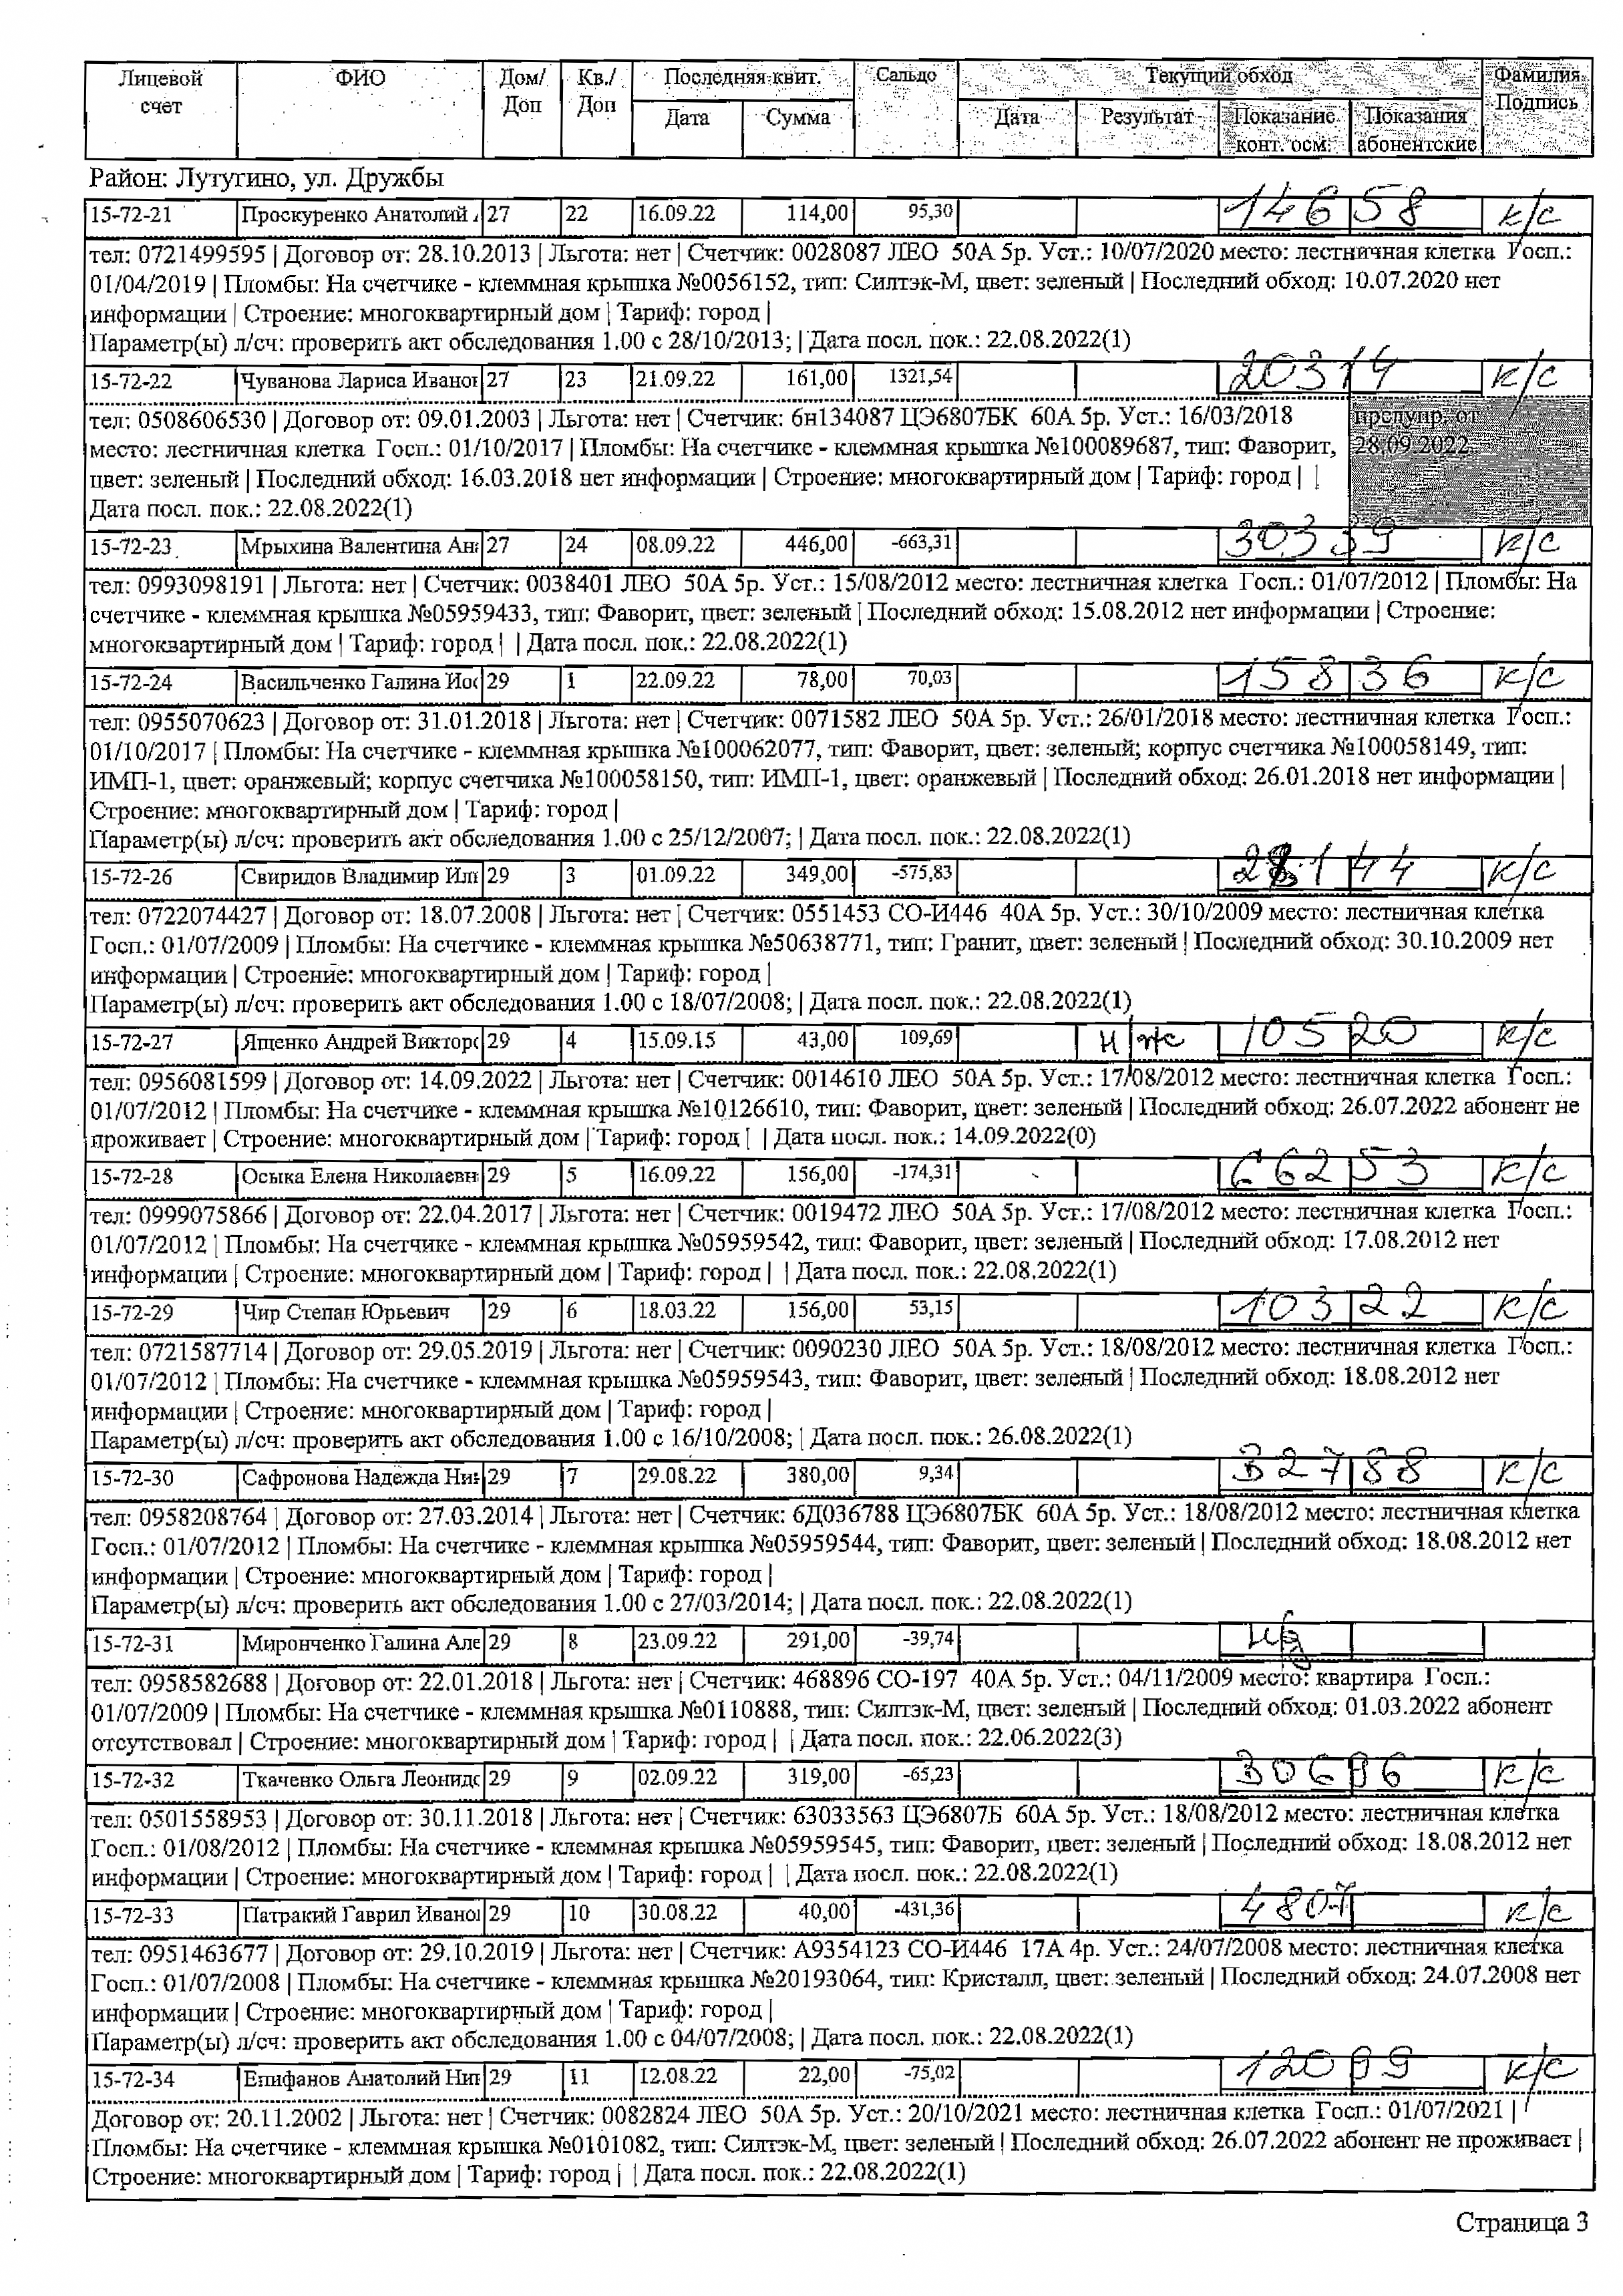 Лицевой счет ФИО Дом/ Доп Кв./ Доп Последняя квит. Сальдо Текущий обход Фамилия Подпись
Дата Сумма Дата Результат Показание конт. осм. Показания абонентские
Район: Лутугино, ул. Дружбы
15-72-21 Проскуренко Анатолий 27 22 16.09.22 114,00 95,30 14658 к/с
тел: 0721499595 | Договор от: 28.10.2013 | Льгота: нет | Счетчик: 0028087 ЛЕО 50А 5р. Уст.: 10/07/2020 место: лестничная клетка Госп.:
01/04/2019 | Пломбы: На счетчике - клеммная крышка №0056152, тип: Силтэк-М, цвет: зеленый | Последний обход: 10.07.2020 нет
информации | Строение: многоквартирный дом | Тариф: город |
Параметр(ы) л/сч: проверить акт обследования 1.00 с 28/10/2013; | Дата посл. пок.: 22.08.2022(1)
15-72-22 Чуванова Лариса Иванов 27 23 21.09.22 161,00 1321,54 20314 к/с
тел: 0508606530 | Договор от: 09.01.2003 | Льгота: нет | Счетчик: 6н134087 ЦЭ6807БК 60А 5р. Уст.: 16/03/2018 предупр. от
место: лестничная клетка Госп.: 01/10/2017 | Пломбы: На счетчике - клеммная крышка №100089687, тип: Фаворит, 28.09.2022
цвет: зеленый | Последний обход: 16.03.2018 нет информации | Строение: многоквартирный дом | Тариф: город | |
Дата посл. пок.: 22.08.2022(1)
15-72-23 Мрыхина Валентина Ан 27 24 08.09.22 446,00 -663,31 30339 к/с
тел: 0993098191 | Льгота: нет | Счетчик: 0038401 ЛЕО 50А 5р. Уст.: 15/08/2012 место: лестничная клетка Госп.: 01/07/2012 | Пломбы: На
счетчике - клеммная крышка №05959433, тип: Фаворит, цвет: зеленый | Последний обход: 15.08.2012 нет информации | Строение:
многоквартирный дом | Тариф: город | | Дата посл. пок.: 22.08.2022(1)
15-72-24 Васильченко Галина Иос 29 1 22.09.22 78,00 70,03 15836 к/с
тел: 0955070623 | Договор от: 31.01.2018 | Льгота: нет | Счетчик: 0071582 ЛЕО 50А 5р. Уст.: 26/01/2018 место: лестничная клетка Госп.:
01/10/2017 | Пломбы: На счетчике - клеммная крышка №100062077, тип: Фаворит, цвет: зеленый; корпус счетчика №100058149, тип:
ИМП-1, цвет: оранжевый; корпус счетчика №100058150, тип: ИМП-1, цвет: оранжевый | Последний обход: 26.01.2018 нет информации |
Строение: многоквартирный дом | Тариф: город |
Параметр(ы) л/сч: проверить акт обследования 1.00 с 25/12/2007; | Дата посл. пок.: 22.08.2022(1)
15-72-26 Свиридов Владимир Ил 29 3 01.09.22 349,00 -575,83 28144 к/с
тел: 0722074427 | Договор от: 18.07.2008 | Льгота: нет | Счетчик: 0551453 СО-И446 40А 5р. Уст.: 30/10/2009 место: лестничная клетка
Госп.: 01/07/2009 | Пломбы: На счетчике - клеммная крышка №50638771, тип: Гранит, цвет: зеленый | Последний обход: 30.10.2009 нет
информации | Строение: многоквартирный дом | Тариф: город |
Параметр(ы) л/сч: проверить акт обследования 1.00 с 18/07/2008; | Дата посл. пок.: 22.08.2022(1)
15-72-27 Ященко Андрей Викторо 29 4 15.09.15 43,00 109,69 н/ж 10520 к/с
тел: 0956081599 | Договор от: 14.09.2022 | Льгота: нет | Счетчик: 0014610 ЛЕО 50А 5р. Уст.: 17/08/2012 место: лестничная клетка Госп.:
01/07/2012 | Пломбы: На счетчике - клеммная крышка №10126610, тип: Фаворит, цвет: зеленый | Последний обход: 26.07.2022 абонент не
проживает | Строение: многоквартирный дом | Тариф: город | | Дата посл. пок.: 14.09.2022(0)
15-72-28 Осыка Елена Николаевн 29 5 16.09.22 156,00 -174,31 66253 к/с
тел: 0999075866 | Договор от: 22.04.2017 | Льгота: нет | Счетчик: 0019472 ЛЕО 50А 5р. Уст.: 17/08/2012 место: лестничная клетка Госп.:
01/07/2012 | Пломбы: На счетчике - клеммная крышка №05959542, тип: Фаворит, цвет: зеленый | Последний обход: 17.08.2012 нет
информации | Строение: многоквартирный дом | Тариф: город | | Дата посл. пок.: 22.08.2022(1)
15-72-29 Чир Степан Юрьевич 29 6 18.03.22 156,00 53,15 10322 к/с
тел: 0721587714 | Договор от: 29.05.2019 | Льгота: нет | Счетчик: 0090230 ЛЕО 50А 5р. Уст.: 18/08/2012 место: лестничная клетка Госп.:
01/07/2012 | Пломбы: На счетчике - клеммная крышка №05959543, тип: Фаворит, цвет: зеленый | Последний обход: 18.08.2012 нет
информации | Строение: многоквартирный дом | Тариф: город |
Параметр(ы) л/сч: проверить акт обследования 1.00 с 16/10/2008; | Дата посл. пок.: 26.08.2022(1)
15-72-30 Сафронова Надежда Ни 29 7 29.08.22 380,00 9,34 32788 к/с
тел: 0958208764 | Договор от: 27.03.2014 | Льгота: нет | Счетчик: 6Д036788 ЦЭ6807БК 60А 5р. Уст.: 18/08/2012 место: лестничная клетка
Госп.: 01/07/2012 | Пломбы: На счетчике - клеммная крышка №05959544, тип: Фаворит, цвет: зеленый | Последний обход: 18.08.2012 нет
информации | Строение: многоквартирный дом | Тариф: город |
Параметр(ы) л/сч: проверить акт обследования 1.00 с 27/03/2014; | Дата посл. пок.: 22.08.2022(1)
15-72-31 Миронченко Галина Але 29 8 23.09.22 291,00 -39,74
тел: 0958582688 | Договор от: 22.01.2018 | Льгота: нет | Счетчик: 468896 СО-197 40А 5р. Уст.: 04/11/2009 место: квартира Госп.:
01/07/2009 | Пломбы: На счетчике - клеммная крышка №0110888, тип: Силтэк-М, цвет: зеленый | Последний обход: 01.03.2022 абонент
отсутствовал | Строение: многоквартирный дом | Тариф: город | | Дата посл. пок.: 22.06.2022(3)
15-72-32 Ткаченко Ольга Леонидо 29 9 02.09.22 319,00 -65,23 к/с
тел: 0501558953 | Договор от: 30.11.2018 | Льгота: нет | Счетчик: 63033563 ЦЭ6807Б 60А 5р. Уст.: 18/08/2012 место: лестничная клетка
Госп.: 01/08/2012 | Пломбы: На счетчике - клеммная крышка №05959545, тип: Фаворит, цвет: зеленый | Последний обход: 18.08.2012 нет
информации | Строение: многоквартирный дом | Тариф: город | | Дата посл. пок.: 22.08.2022(1)
15-72-33 Патракий Гаврил Иванов 29 10 30.08.22 40,00 -431,36 4807 к/с
тел: 0951463677 | Договор от: 29.10.2019 | Льгота: нет | Счетчик: А9354123 СО-И446 17А 4р. Уст.: 24/07/2008 место: лестничная клетка
Госп.: 01/07/2008 | Пломбы: На счетчике - клеммная крышка №20193064, тип: Кристалл, цвет: зеленый | Последний обход: 24.07.2008 нет
информации | Строение: многоквартирный дом | Тариф: город |
Параметр(ы) л/сч: проверить акт обследования 1.00 с 04/07/2008; | Дата посл. пок.: 22.08.2022(1)
15-72-34 Епифанов Анатолий Ник 29 11 12.08.22 22,00 -75,02 12099 к/с
Договор от: 20.11.2002 | Льгота: нет | Счетчик: 0082824 ЛЕО 50А 5р. Уст.: 20/10/2021 место: лестничная клетка Госп.: 01/07/2021 |
Пломбы: На счетчике - клеммная крышка №0101082, тип: Силтэк-М, цвет: зеленый | Последний обход: 26.07.2022 абонент не проживает |
Строение: многоквартирный дом | Тариф: город | | Дата посл. пок.: 22.08.2022(1)
Страница 3